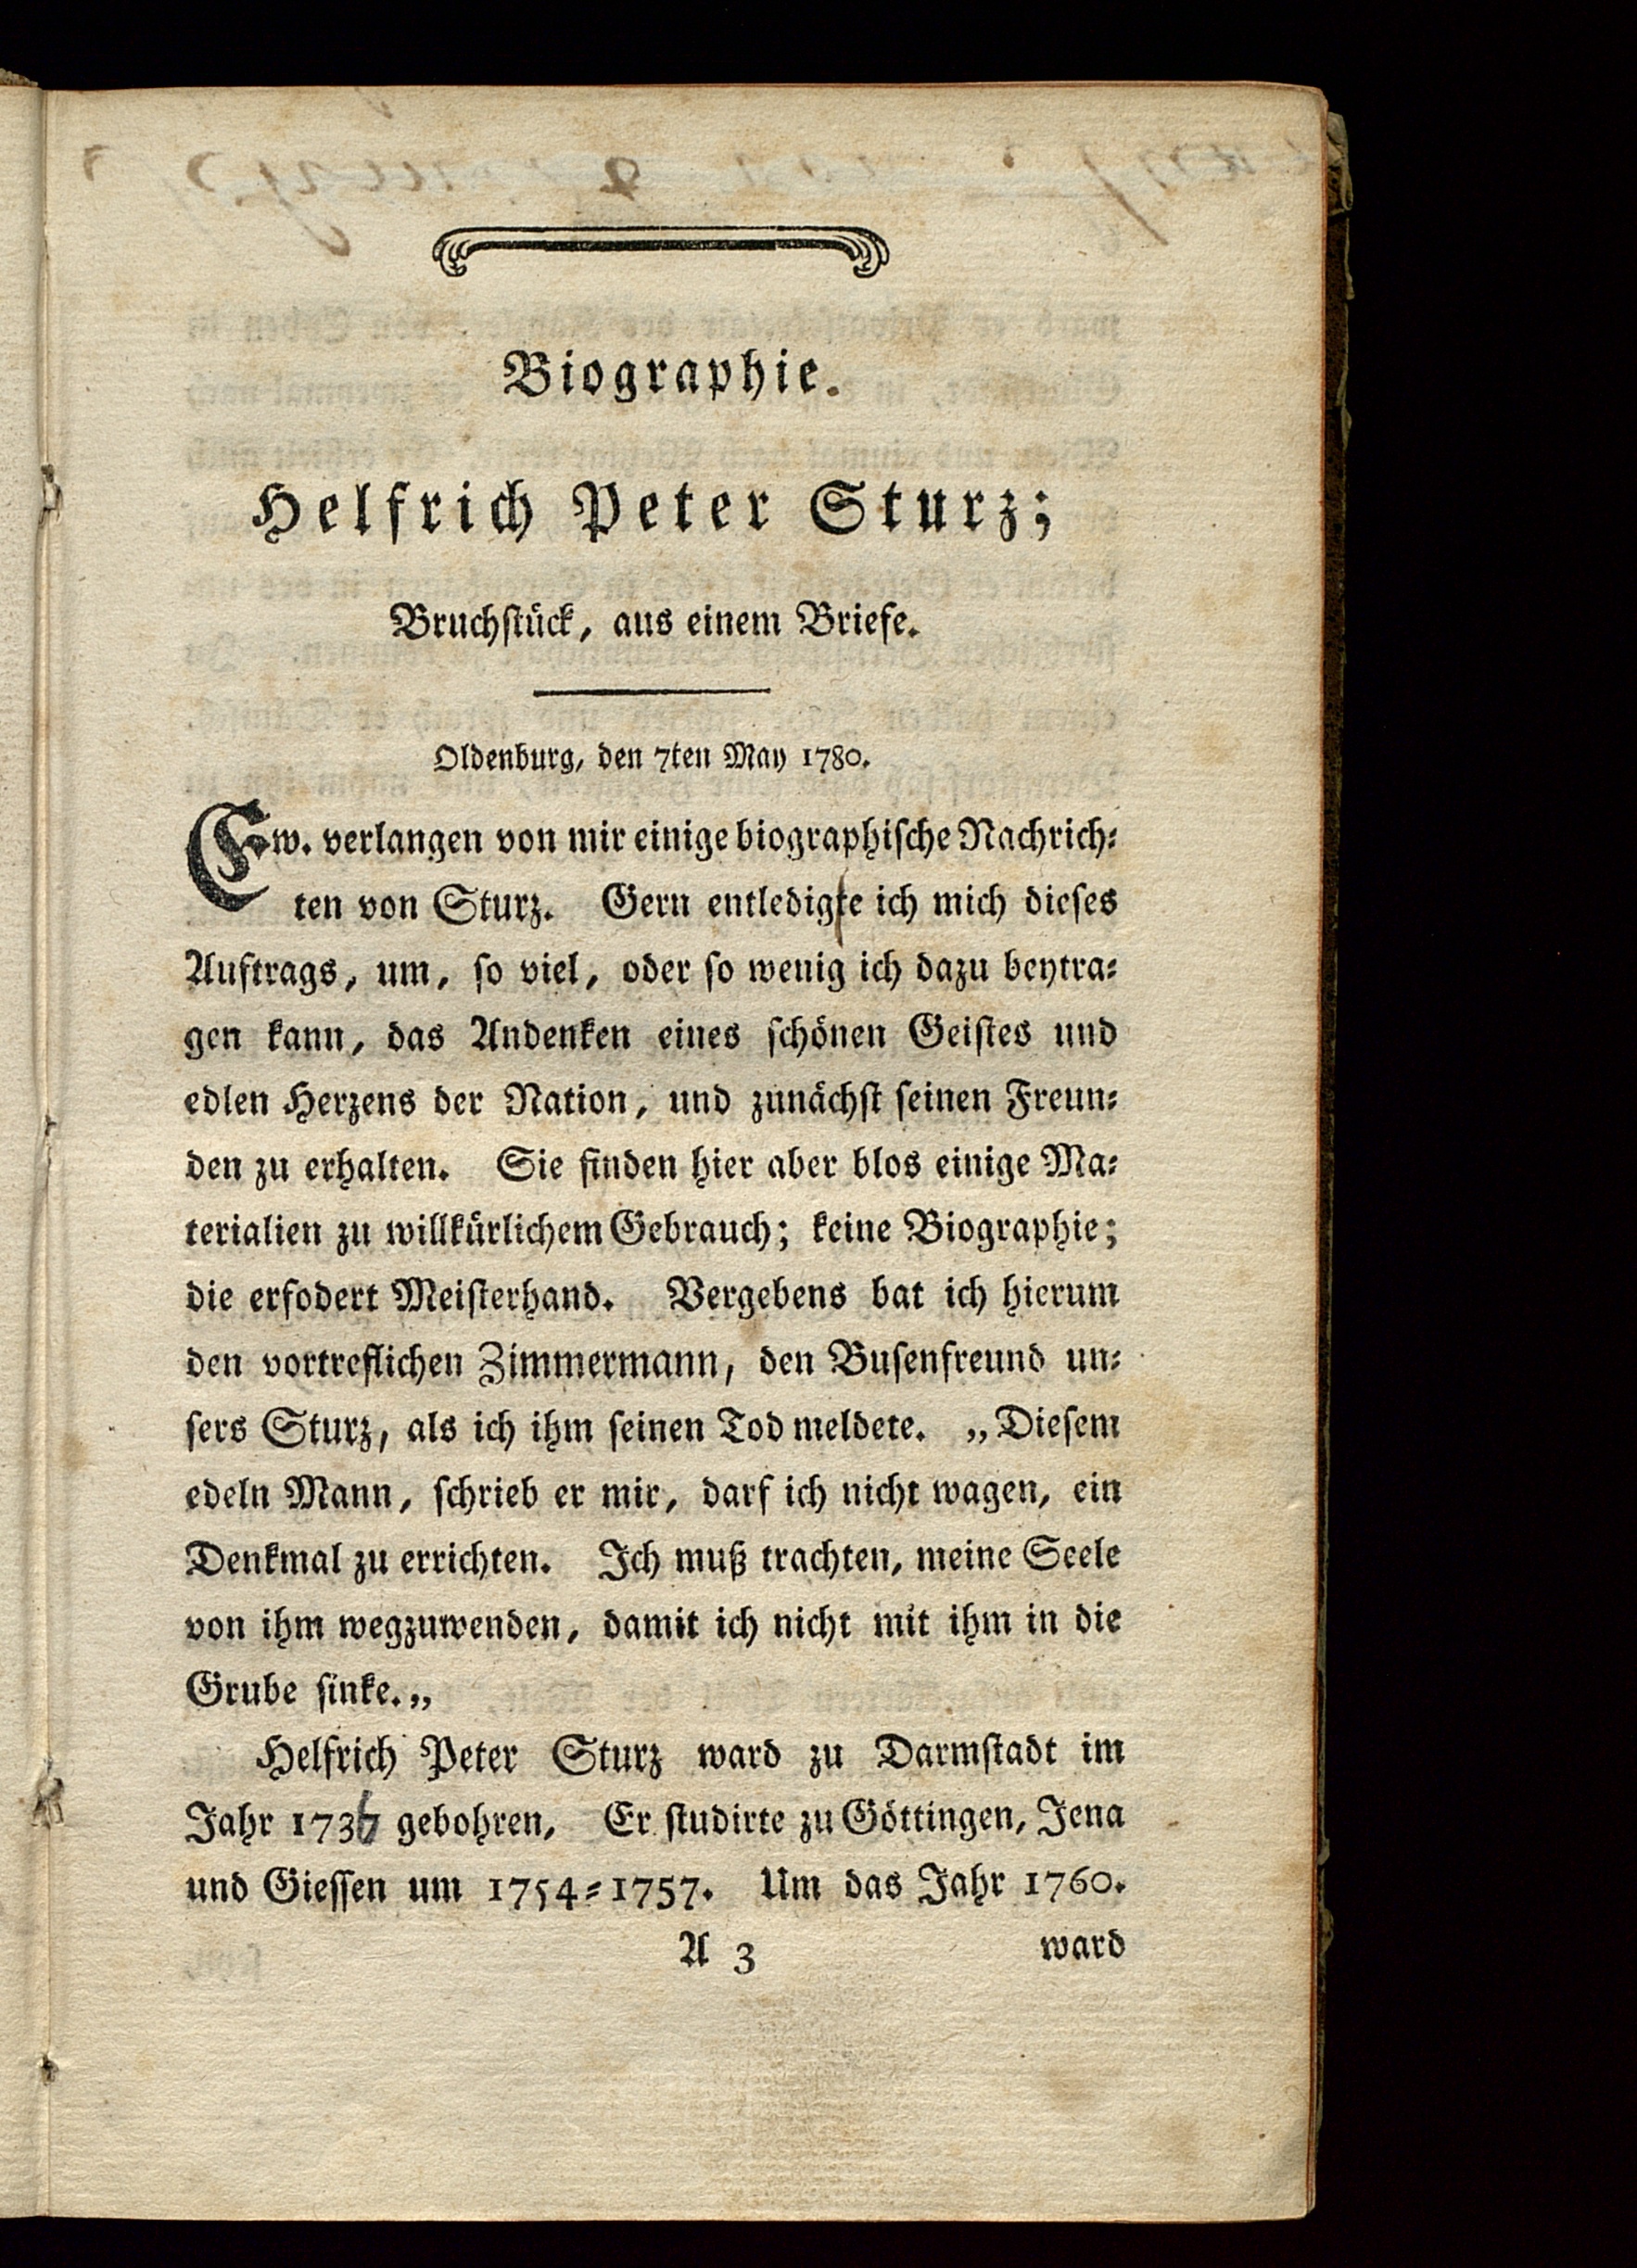 Biographie.
Helfrich Peter Sturz;
Bruchstück, aus einem Briefe.
Oldenburg, den 7ten May 1780.
Ew. verlangen von mir einige biographische Nachrich-
ten von Sturz. Gern entledigte ich mich dieses
Auftrags, um, so viel, oder so wenig ich dazu beytra-
gen kann, das Andenken eines schönen Geistes und
edlen Herzens der Nation, und zunächst seinen Freun-
den zu erhalten. Sie finden hier aber blos einige Ma-
terialien zu willkürlichem Gebrauch; keine Biographie;
die erfodert Meisterhand. Vergebens bat ich hierum
den vortreflichen Zimmermann, den Busenfreund un-
sers Sturz, als ich ihm seinen Tod meldete. „Diesem
edeln Mann, schrieb er mir, darf ich nicht wagen, ein
Denkmal zu errichten. Ich muß trachten, meine Seele
von ihm wegzuwenden, damit ich nicht mit ihm in die
Grube sinke.„
Helfrich Peter Sturz ward zu Darmstadt im
Jahr gebohren, Er studirte zu Göttingen, Jena
und Giessen um 1754-1757. Um das Jahr 1760.
A 3 ward